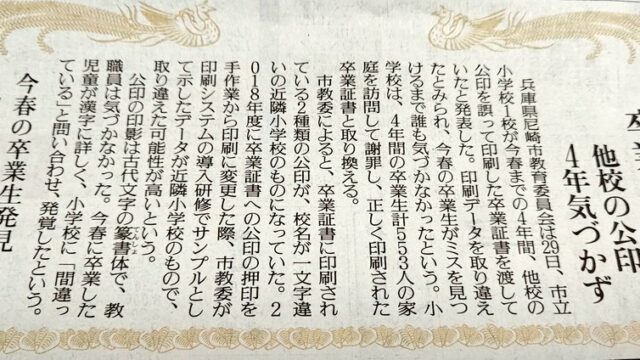 卒業
他校の公印
4年気づかず
兵庫県尼崎市教育委員会は29日、市立
小学校1校が今春までの4年間、他校の
公印を誤って印刷した卒業証書を渡して
いたと発表した。印刷データを取り違え
たとみられ、今春の卒業生がミスを見つ
けるまで誰も気づかなかったという。小
学校は、4年間の卒業生計553人の家
庭を訪問して謝罪し、正しく印刷された
卒業証書と取り換える。
市教委によると、卒業証書に印刷され
ている2種類の公印が、校名が一文字違
いの近隣小学校のものになっていた。2
018年度に卒業証書への公印の押印を
手作業から印刷に変更した際、市教委が
印刷システムの導入研修でサンプルとし
て示したデータが近隣小学校のもので、
取り違えた可能性が高いという。
公印の印影は古代文字の篆書体で、教
てんしょ
職員は気づかなかった。今春に卒業した
児童が漢字に詳しく、小学校に「間違っ
ている」と問い合わせ、発覚したという。
今春の卒業生発見